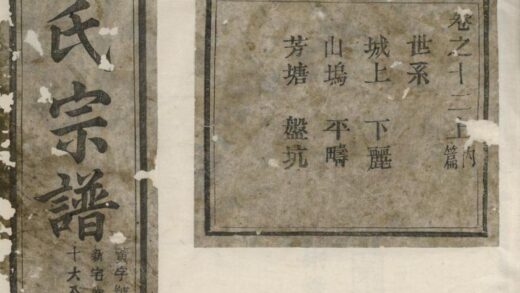 卷之十二上
内篇
世系
城上 下麗
山塢 平疇
芳塘 盤坑
氏宗譜
字
新宅
十大